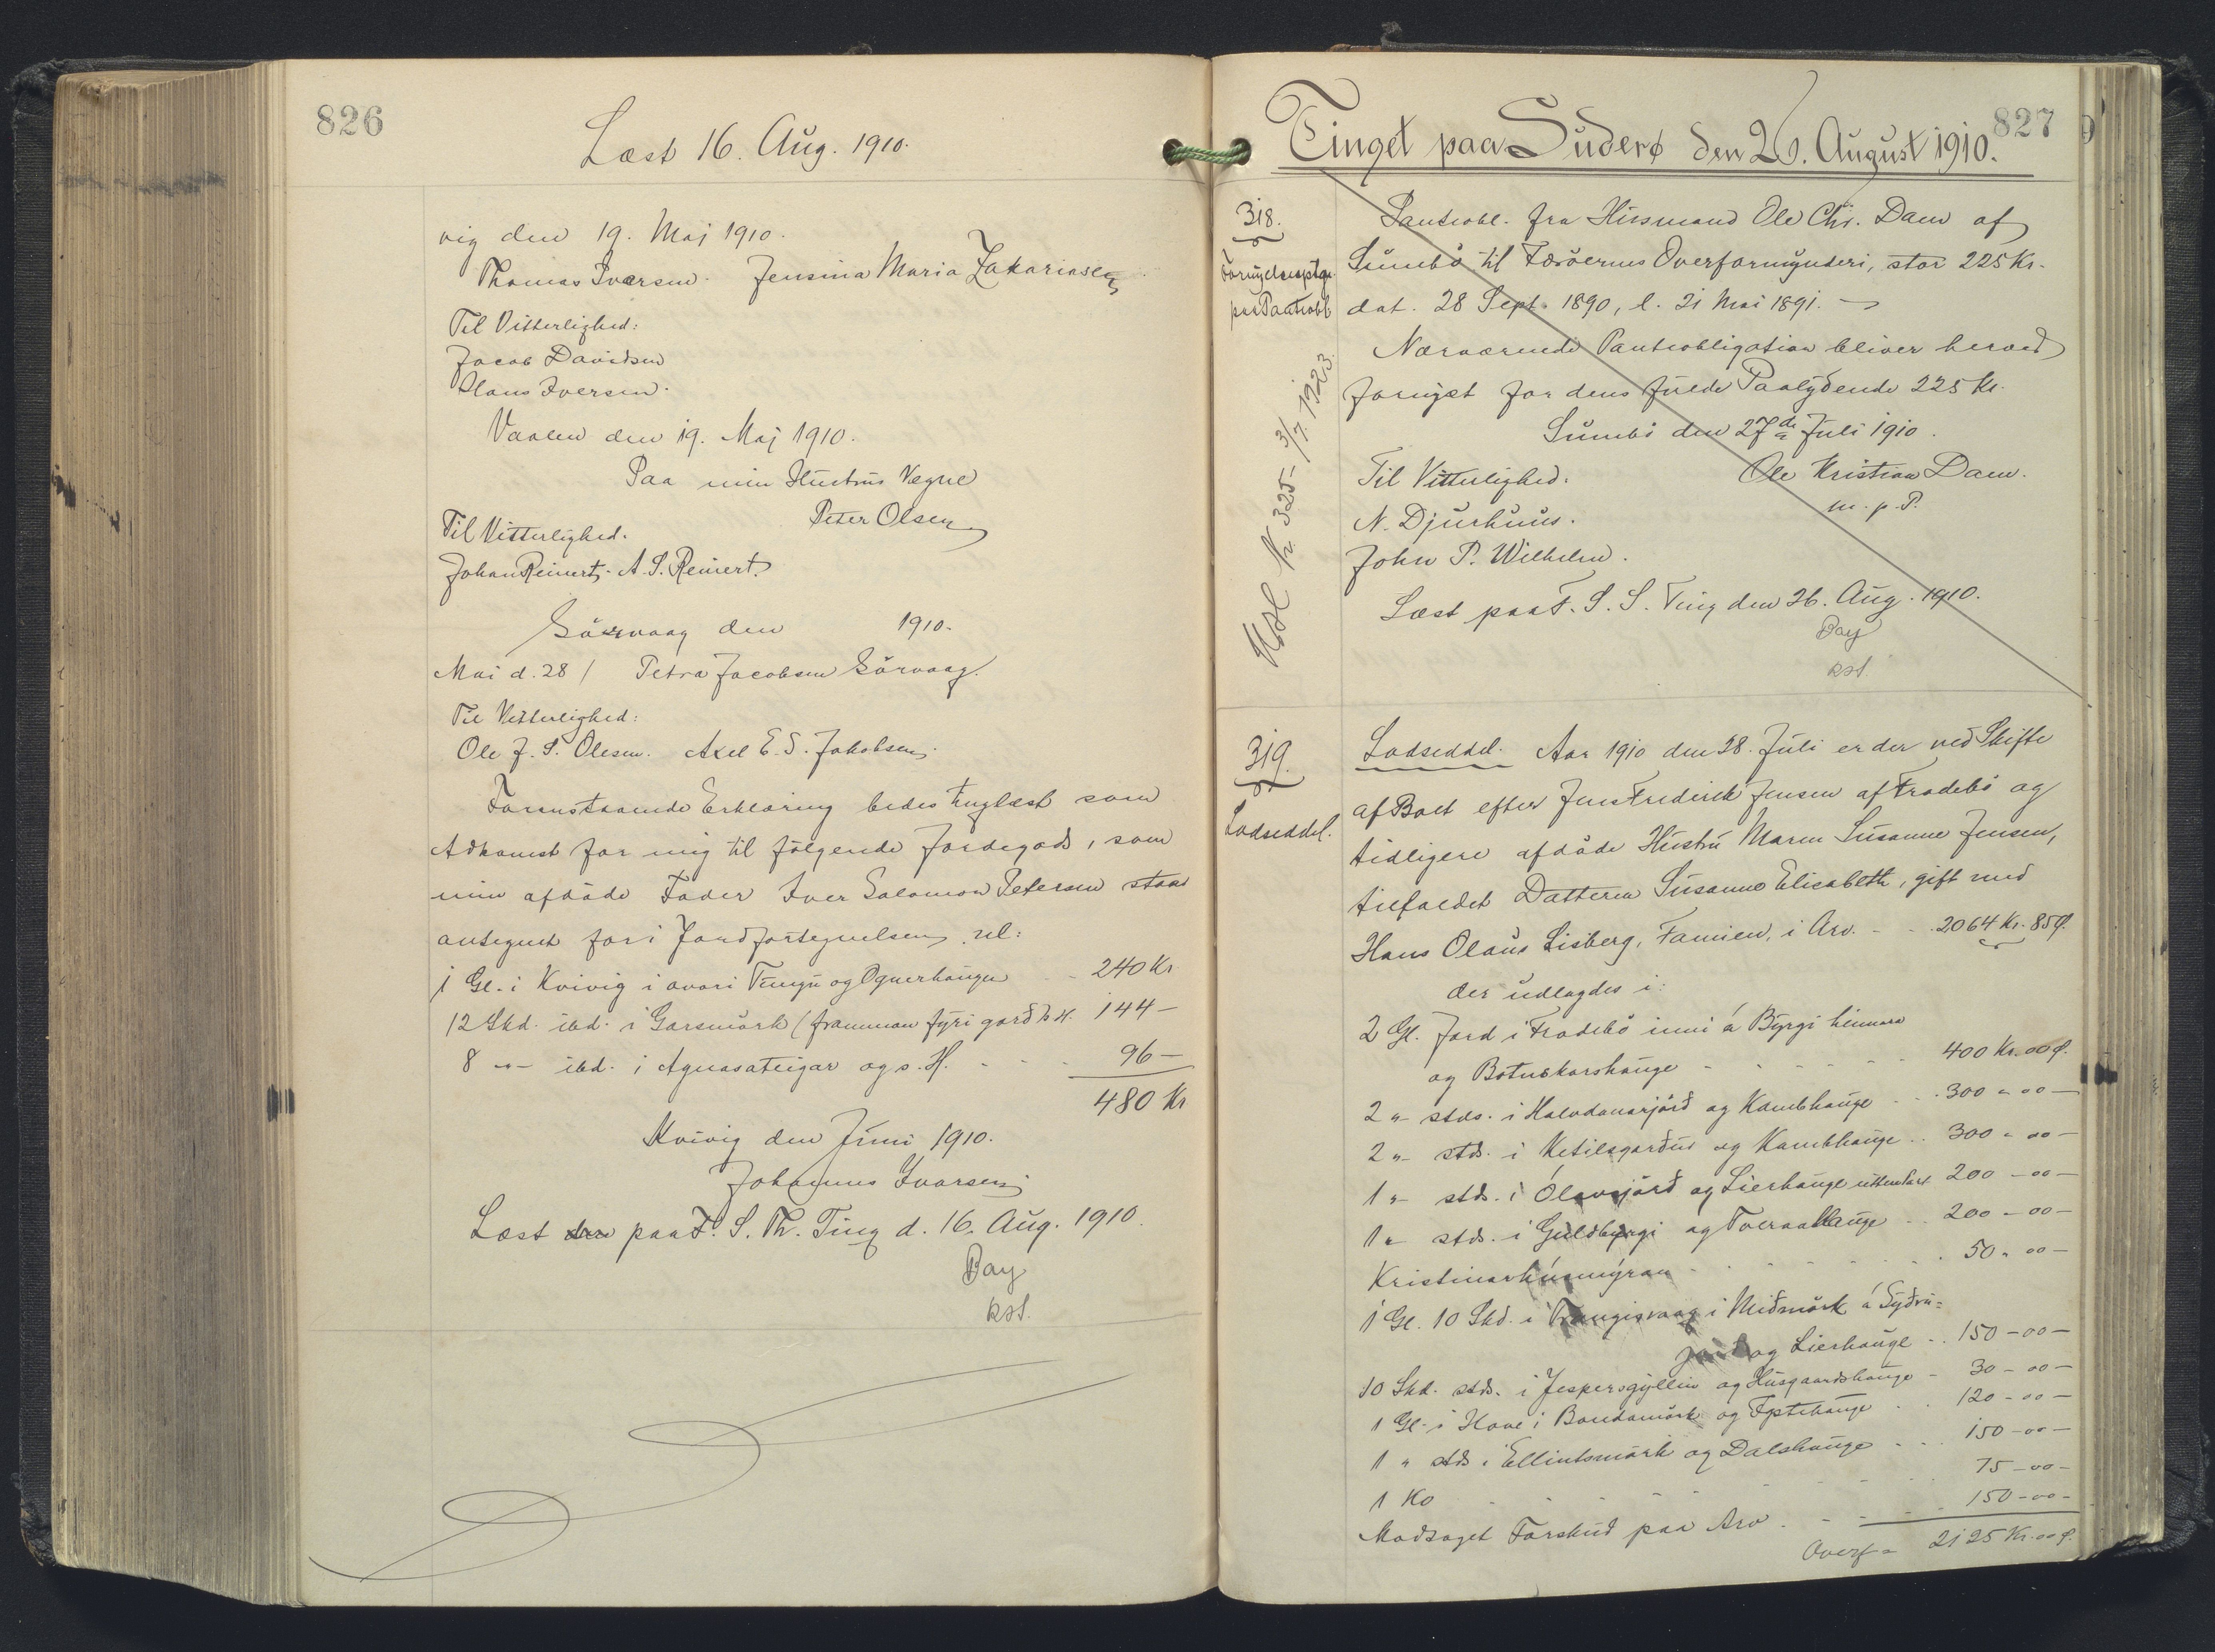 826
Læst 16. Aug. 1910.
vig den 19. Maj 1910.
Thomas Ivarsen. Jensina Maria Zakariasen
Til Vitterlighed:
Jacob Davidsen
Hans Iversen.
Vaalen den 19. Maj 1910.
Paa min Hustrus Vegne
Peter Olsen
Til Vitterlighed.
Johan Reinert. A. S. Reinert.
Sörvaag den 1910.
Mai d. 28 / Petra Jacobsen Sörvaag.
Til Vitterlighed:
Ole J. S. Olesen. Axel E. S. Jakobsen.
Foranstaaende Erklæring bedes tinglæst som
Adkomst for mig til følgende Jordegods, som
min afdöde Fader Iver Salomon Petersen staar
antegnet for i Jordfortegnelsen, nl:
1 Gl. i Kvivig i ovari Tungu og Ognerhaugen - 240 Kr
12 Skd. ibd. i Garsmörk (framman fyri gard b. H. 144 —
8 -"- ibd. i Agnasateigar og s. H. - - - 96 —
480 Kr
Kvivig den Juni 1910.
Johannes Ivarsen.
Læst den paa F. S. Th. Ting d. 16. Aug. 1910.
Bay
kst.
827
Tinget paa Suderø den 26. August 1910.
318.
Fornyelsesptgn.
paa Pantobl.
Panteobl. fra Husmand Ole Chr. Dam af
Sumbö til Færöernes Overformynderi, stor 225 Kr.
dat. 28 Sept. 1890, l. 21 Mai 1891. —
Nærværende Panteobligation bliver herved
fornyet for dens fulde Paalydende 225 Kr.
Sumbö den 27de Juli 1910.
Til Vitterlighed. Ole Kristian Dam.
m. p. P.
N. Djurhuus.
John P. Wilhelm.
Læst paa F. S. S. Ting den 26. Aug. 1910.
Bay
kst.
Nr. 325 - 3/7. 1923.
319.
Lodseddel.
Lodseddel. Aar 1910 den 28. Juli er der ved Skifte
af Boet efter Jens Frederik Jensen af Frodebö og
tidligere afdöde Hustru Maren Susanne Jensen,
tilfaldet Datteren Susanne Elisabeth, gift med
Hans Olaus Lisberg, Famien, i Arv. - - 2064 Kr. 85 Ø.
der udlagdes i:
2 Gl. Jord i Frodebö inni á Byrgi heimara
og Botnskorshauge - - - - - 400 Kr. 00 Ø.
2 "- stds. i Halvdanarjörd og Kambhauge - - 300 - 00 —
2 "- stds. i Ketilsgardur og Kambhauge - - 300 - 00 —
1 "- stds. i Ólavsjörd og Lierhauge uttenfurt 200 - 00 —
1 "- stds. i Guldbyrgi og Tveraahauge - - 200 - 00 —
Kristinarhúsmýran - - - - - 50 - 00 —
1 Gl. 10 Skd. i Trangisvaag i Midmörk á Sydru=
jord og Lierhauge - - 150 - 00 —
10 Skd. stds. i Jespersgyllin og Husgaardshauge - 30 - 00 —
1 Gl. i Hove i Bondamörk og Eptihauge - - 120 - 00 —
1 " stds. i Ellintsmörk og Dalshauge - - - 150 - 00 —
1 Ko - - - - - - 75 - 00 —
Modtaget Forskud paa Arv - - - - 150 - 00 —
Overf. 2125 Kr. 00 Ø.